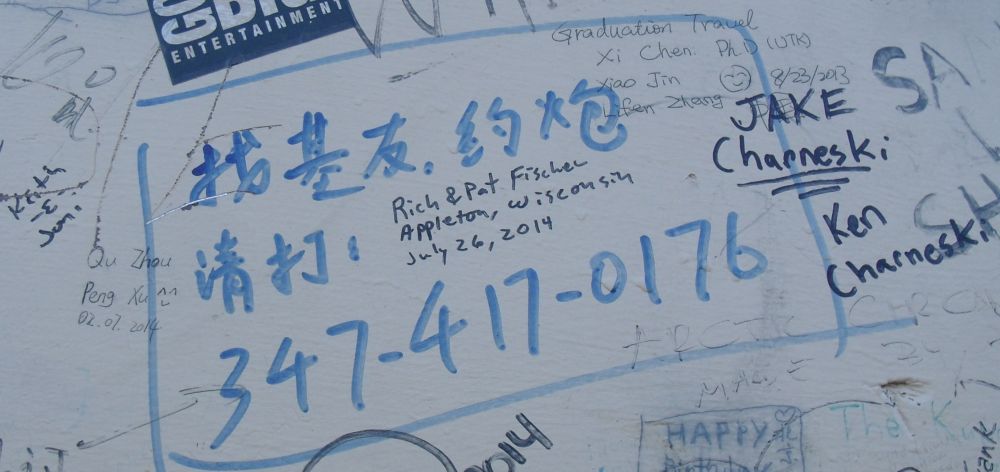 ENTERTAINMENT
Graduation Travel
Xi Chen. Ph.D (UTK)
Xiao Jin 8/23/2013
Lifen Zhang
JAKE
Charneski
Ken
Charneski
找基友,约炮
请打:
347-417-0176
Rich & Pat Fischer
Appleton, Wisconsin
July 26, 2014
Keith
Jeni
Qu Zhou
Peng Xu
02.07.2014
SA
SH
ARCTIC
MADE
HAPPY
Birthday
The
2014